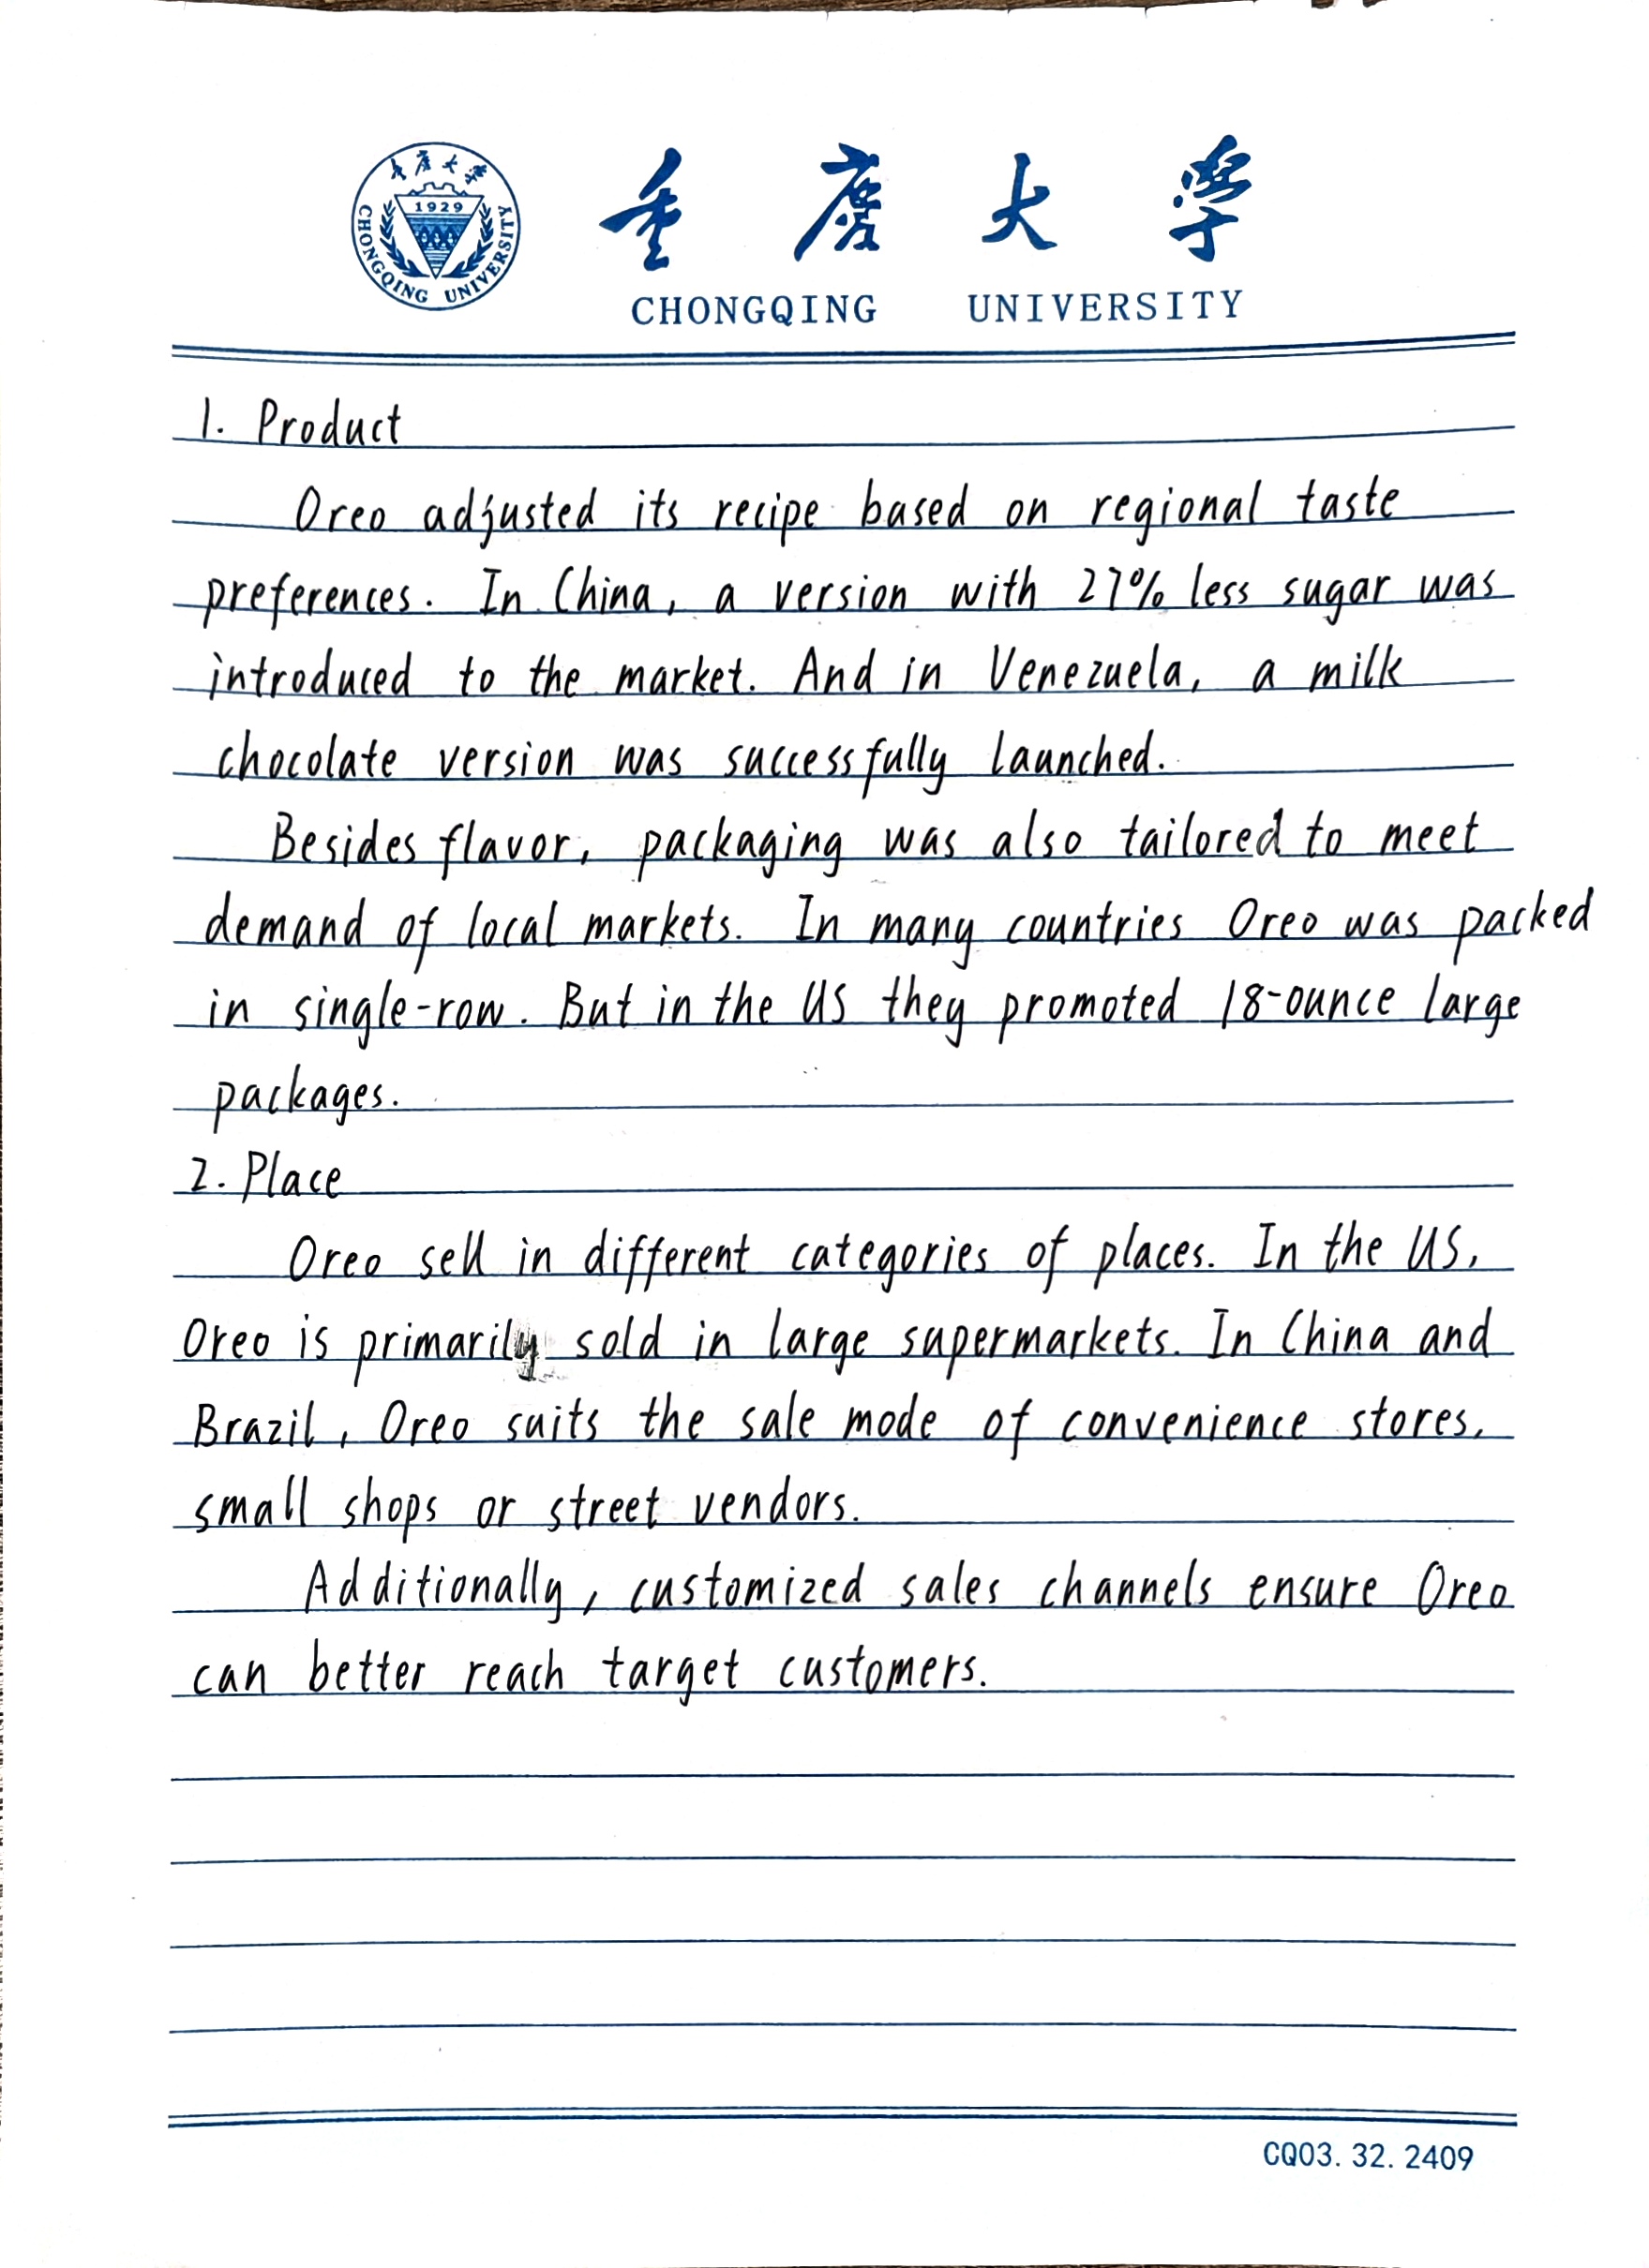 重庆大学
1929
CHONGQING UNIVERSITY
重庆大学
CHONGQING UNIVERSITY
1. Product
Oreo adjusted its recipe based on regional taste
preferences. In China, a version with 27% less sugar was
introduced to the market. And in Venezuela, a milk
chocolate version was successfully launched.
Besides flavor, packaging was also tailored to meet
demand of local markets. In many countries Oreo was packed
in single-row. But in the US they promoted 18-ounce large
packages.
2. Place
Oreo sell in different categories of places. In the US,
Oreo is primarily sold in large supermarkets. In China and
Brazil, Oreo suits the sale mode of convenience stores,
small shops or street vendors.
Additionally, customized sales channels ensure Oreo
can better reach target customers.
CQ03.32.2409